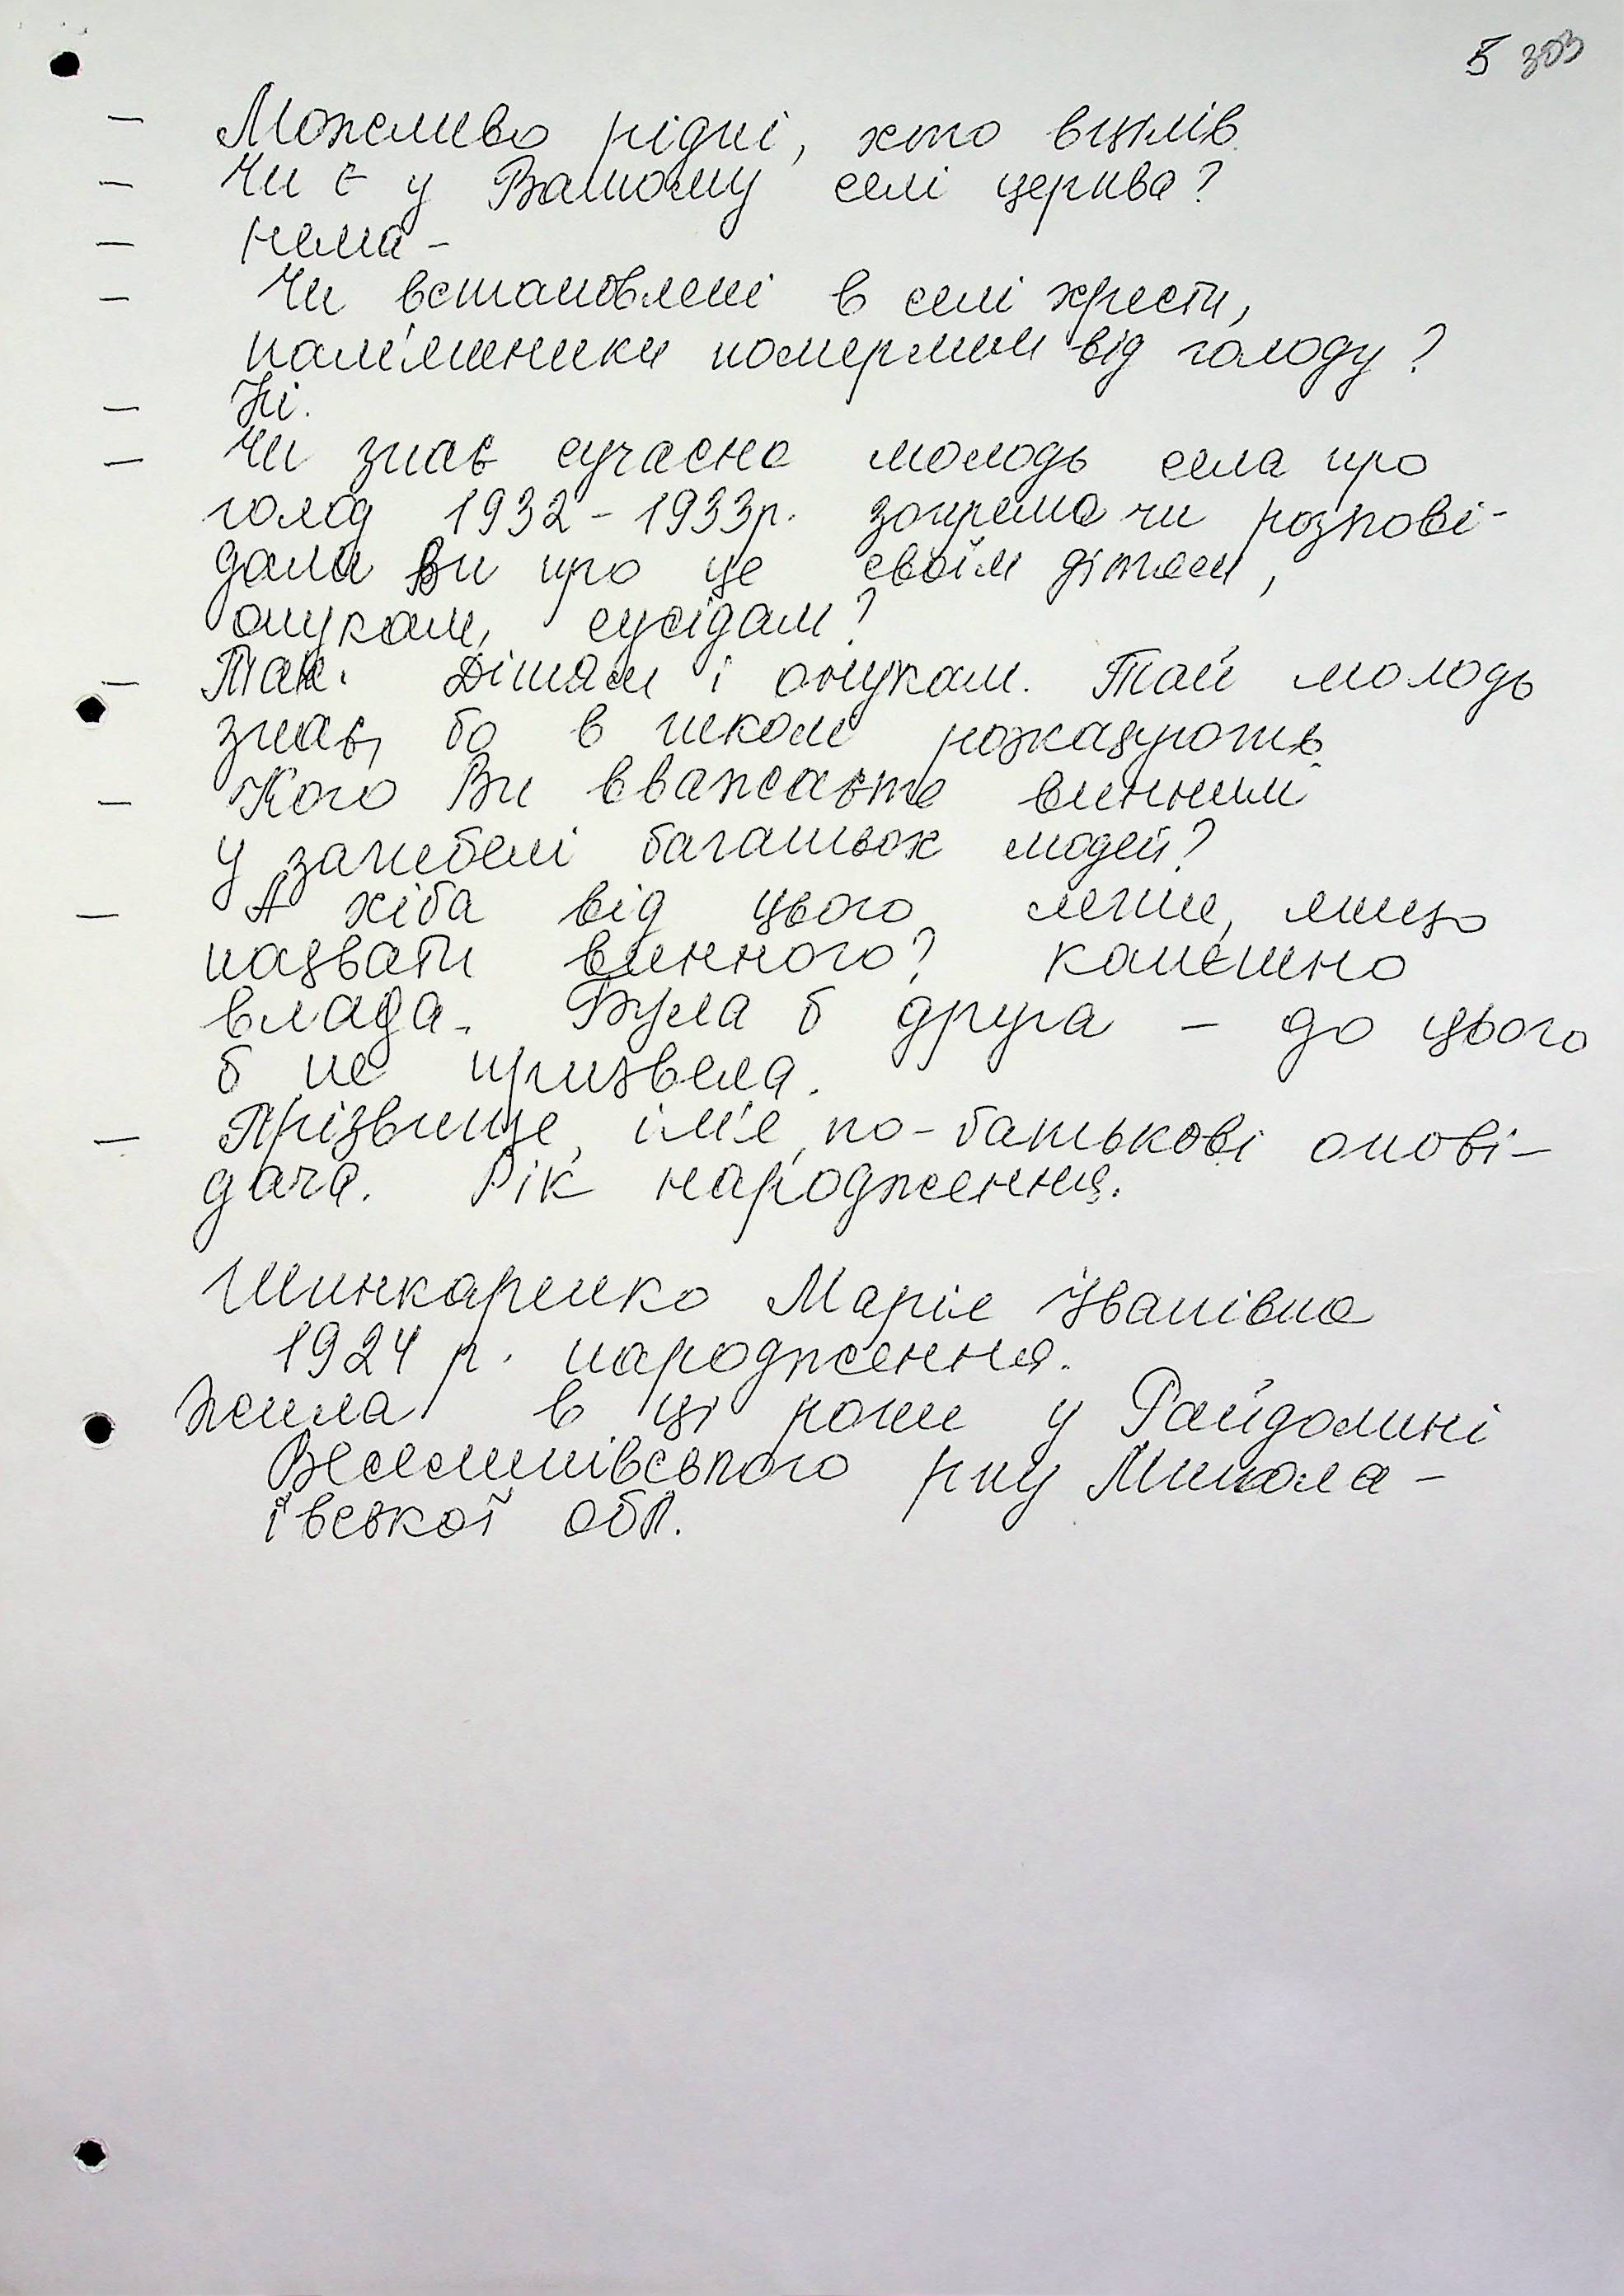 5 303
— Можливо рідні, хто вцілів.
— Чи є у Вашому селі церква?
— Нема -
— Чи встановлені в селі хрести,
пам'ятники померлим від голоду?
— Ні.
— Чи знає сучасна молодь села про
голод 1932-1933р. зокрема чи розпові-
дали Ви про це своїм дітям,
онукам, сусідам?
— Так. Дітям і онукам. Тай молодь
знає, бо в школі розказують.
— Кого Ви вважаєте винним
у загибелі багатьох людей?
— А хіба від цього легше, якщо
назвати винного? Канєшно
влада. Була б друга - до цього
б не призвела.
— Прізвище, ім'я, по-батькові опові-
дача. Рік народження.
Шинкаренко Марія Іванівна
1924 р. народження.
Жила в ці роки у Райдолині
Веселинівського р-ну Микола-
ївської обл.